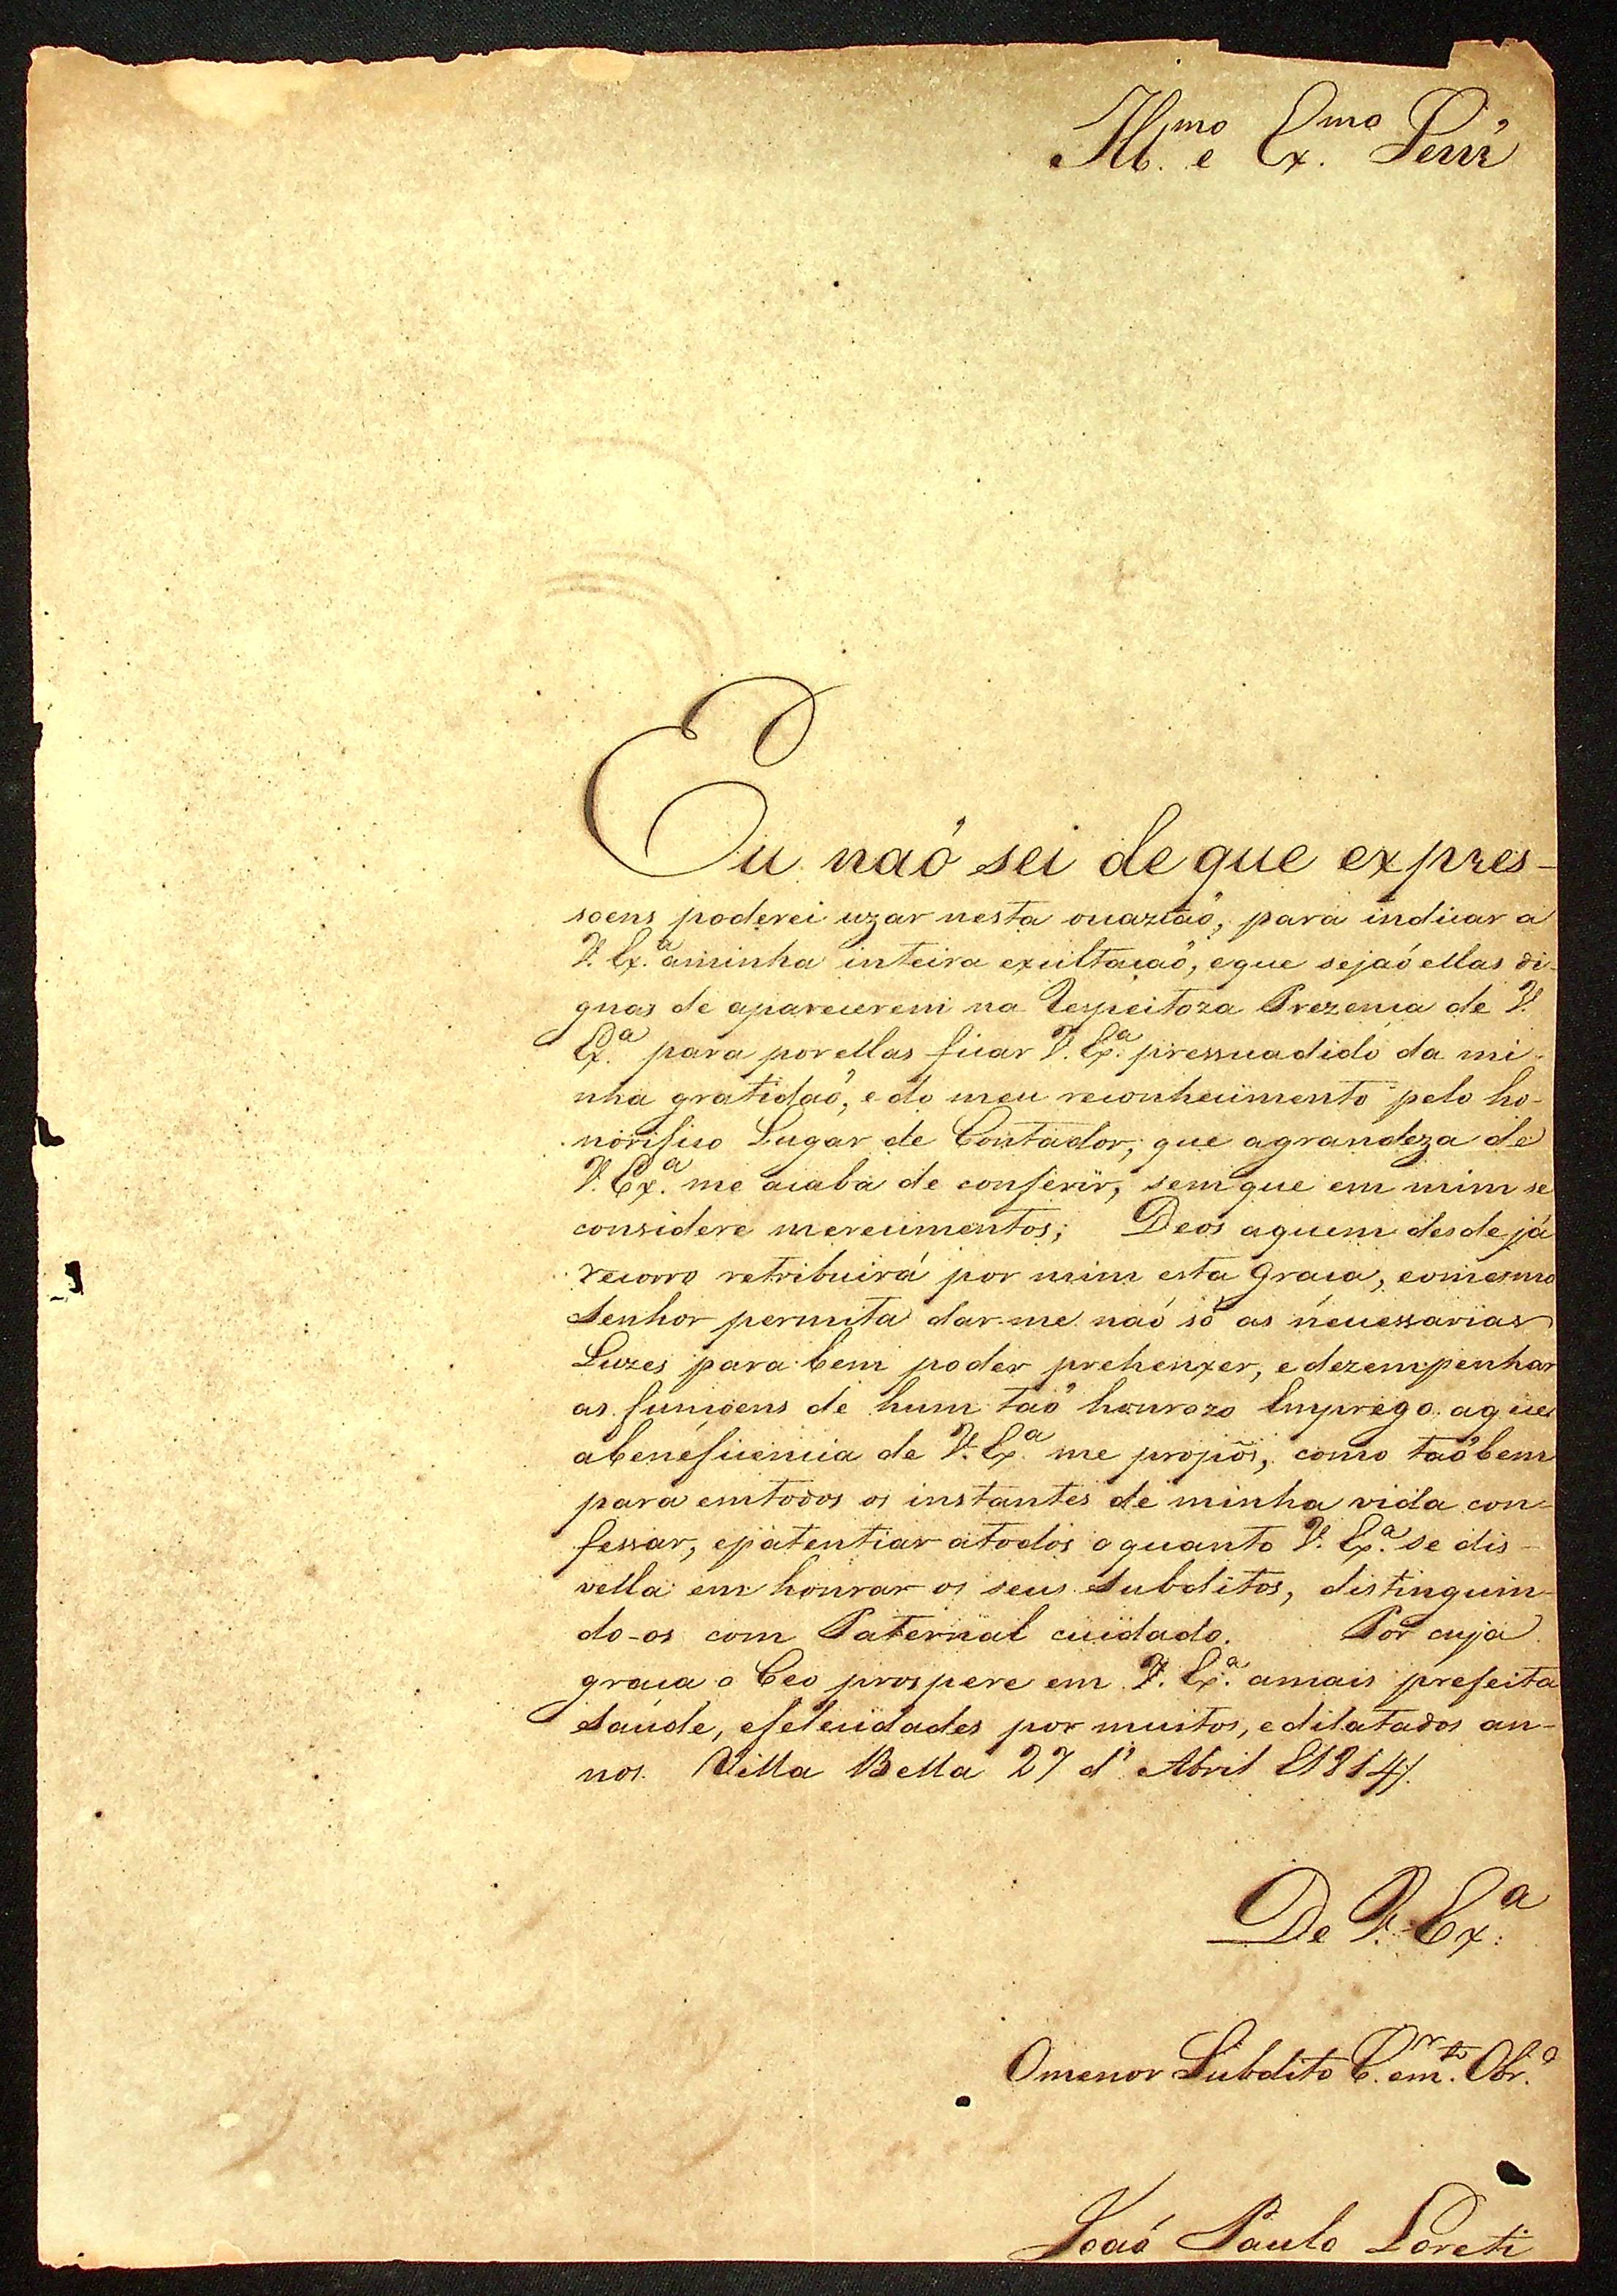 Ill.mo e Ex.mo Senr.
Eu naõ sei de que expres-
soens poderei uzar nesta ocaziaõ, para indicar a
V. Ex.a aminha inteira exultaçaõ, eque sejaõ ellas di-
gnas de aparecerem na Respeitoza Prezença de V.
Ex.a para porellas ficar V. Ex.a pressuadido da mi-
nha gratidaõ, e do meu reconhecimento pelo ho-
norifico Lugar de Contador, que agrandeza de
V. Ex.a me acaba de conferir, semque em mim se
considere merecimentos; Deos aquem desde já
recorro retribuirá por mim esta Graça, eomesmo
Senhor permita dar-me naõ só as necessarias
Luzes para bem poder prehenxer, edezempenhar
as funçoens de hum taõ honrozo Emprego aque
abeneficencia de V. Ex.a me propõs, como taõbem
para emtodos os instantes de minha vida con-
fessar, epatentiar atodos oquanto V. Ex.a se dis-
vella em honrar os seus Subditos, distinguin-
do-os com Paternal cuidado. Por cuja
graça o Ceo prospere em V. Ex.a amais prefeita
Saude, efelecidades por muitos, edilatados an-
nos. Villa Bella 27 d' Abril d 1814.
De V. Ex.a
Omenor Subdito C. em.to Obr.o
Joaõ Paulo Loreti